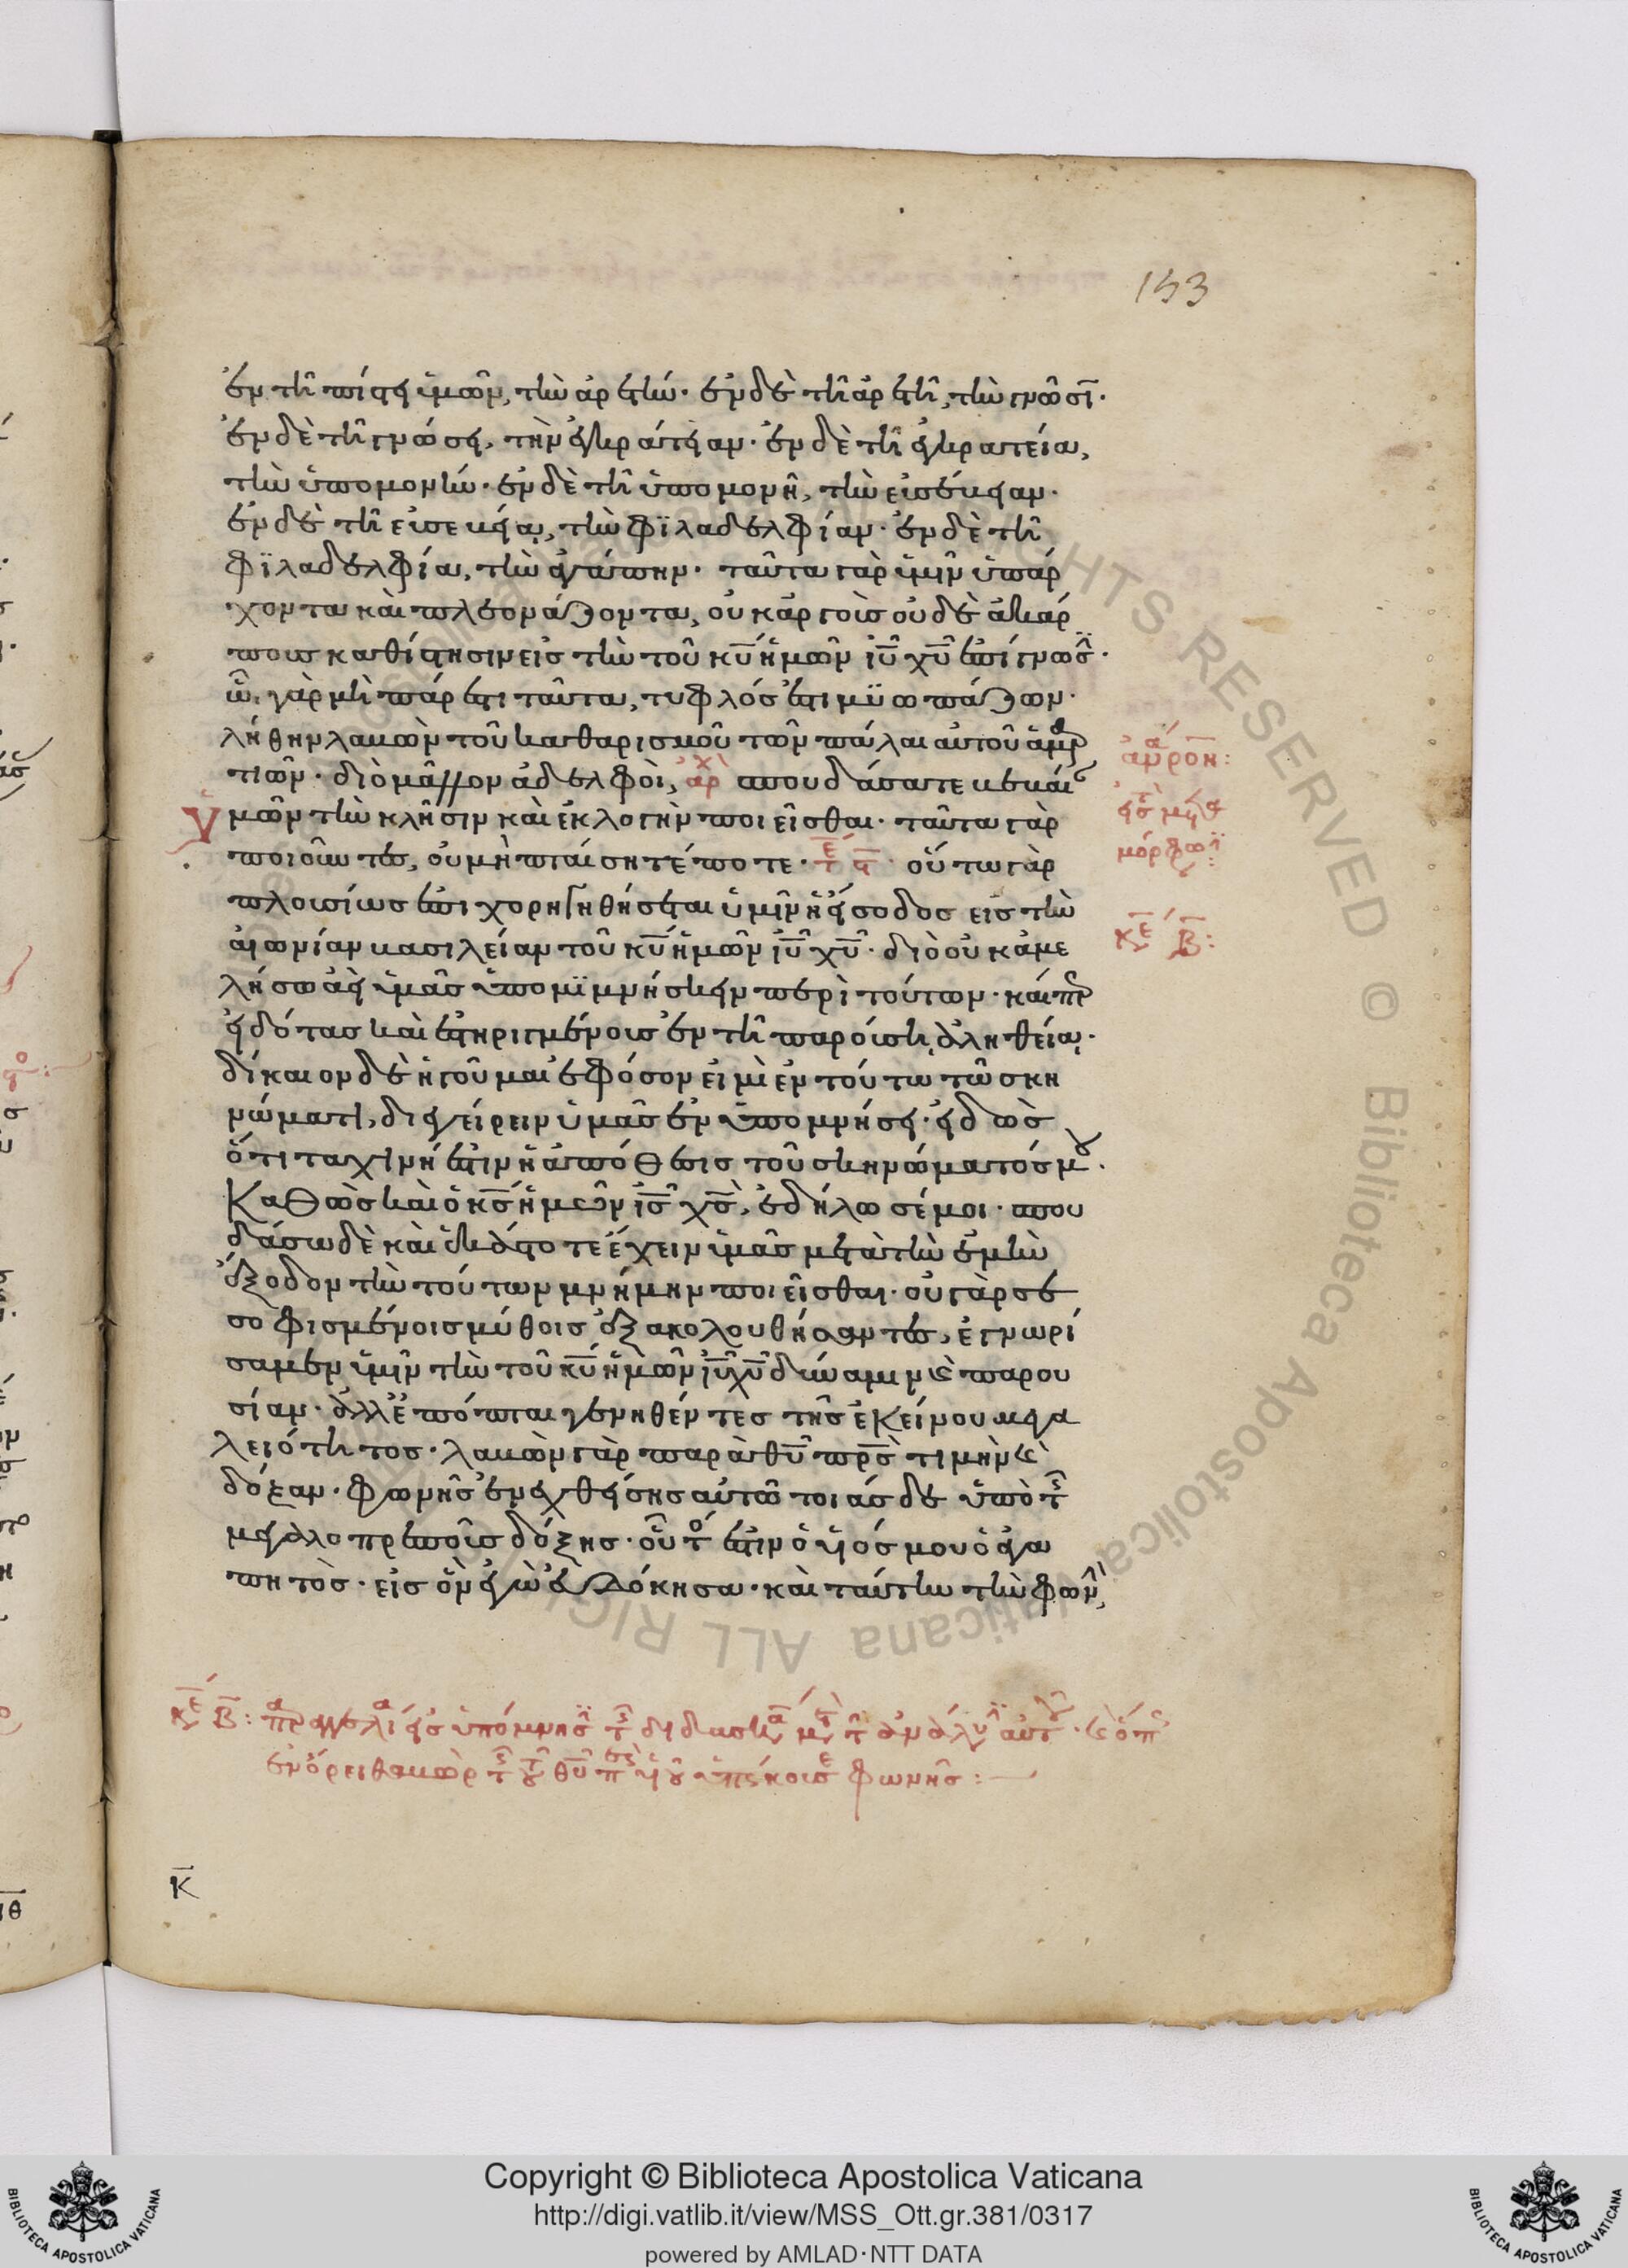 153
ἐν τῆ πίστει ὑμῶν, τὴν ἀρετήν· ἐν δὲ τῆ ἀρετῆ, τὴν γνῶσιν·
ἐν δὲ τῆ γνώσει, τὴν ἐγκράτειαν· ἐν δὲ τῆ ἐγκρατεία,
τὴν ὑπομονήν· ἐν δὲ τῆ ὑπομονῆ, τὴν εὐσέβειαν·
ἐν δὲ τῆ εὐσεβεία, τὴν φϊλαδελφίαν· ἐν δὲ τῆ
φϊλαδελφία, τὴν ἀγάπην· ταῦτα γὰρ ὑμῖν ὑπάρ
χοντα καὶ πλεονάζοντα, οὐκ ἀργοὺς οὐδὲ ἀκάρ
πους καθίστησιν εἰς τὴν τοῦ κυ ἡμῶν ιυ χυ ἐπίγνωσ·
ὧ γὰρ μὴ πάρεστι ταῦτα, τυφλός ἐστι μϋωπάζων·
λήθην λαβὼν τοῦ καθαρισμοῦ τῶν πάλαι αὐτοῦ ἁμαρ
τιῶν· διὸ μᾶλλον ἀδελφοὶ, ἀρχ σπουδάσατε βεβαίαν
Ὑμῶν τὴν κλῆσιν καὶ ἐκλογὴν ποιεῖσθαι· ταῦτα γὰρ
ποιοῦντες, οὐ μὴ πταίσητέ ποτε· οὕτω γὰρ
πλουσίως ἐπιχορηγηθήσεται ὑμῖν ἡ εἴσοδος εἰς τὴν
αἰωνίαν βασιλείαν τοῦ κυ ἡμῶν ιυ χυ· διὸ οὐκ ἀμε
λήσω ἀεὶ ὑμᾶς ὑπομϊμνήσκειν περὶ τούτων· καίπερ
εἰδότας καὶ ἐστηριγμένους ἐν τῆ παρούση ἀληθεία·
δίκαιον δὲ ἡγοῦμαι ἐφόσον εἰμὶ ἐν τούτω τῶ σκη
νώματι, διεγείρειν ὑμᾶς ἐν ὑπομνήσει· εἰδὼς
ὅτι ταχινή ἐστιν ἡ ἀπόθεσις τοῦ σκηνώματός μου·
Καθὼς καὶ ὁ κς ἡμῶν ις χς, ἐδήλωσέ μοι· σπου
δάσω δὲ καὶ ἑκάστοτε ἔχειν ὑμᾶς μετὰ τὴν ἐμὴν
ἔξοδον τὴν τούτων μνήμην ποιεῖσθαι· οὐ γὰρ σε
σοφισμένοις μύθοις ἐξακολουθήσαντες, ἐγνωρί
σαμεν ὑμῖν τὴν τοῦ κυ ἡμῶν ιυ χυ δύναμιν καὶ παρου
σίαν· ἀλλ' ἐπόπται γενηθέντες τῆς ἐκείνου μεγα
λειότητος· λαβὼν γὰρ παρὰ θυ πρς τιμὴν καὶ
δόξαν· φωνῆς ἐνεχθείσης αὐτῶ τοιάσδε ὑπὸ τῆς
μεγαλοπρεποῦς δόξης· οὗτός ἐστιν ὁ υἱός μου ὁ ἀγα
πητὸς· εἰς ὃν ἐγὼ εὐδόκησα· καὶ ταύτην τὴν φων
κε Β:
κε Β:
ἐν ὄρει θαβὼρ φωνῆς:
Κ
ιθ
Copyright © Biblioteca Apostolica Vaticana
http://digi.vatlib.it/view/MSS_Ott.gr.381/0317
powered by AMLAD·NTT DATA
BIBLIOTECA APOSTOLICA VATICANA
BIBLIOTECA APOSTOLICA VATICANA